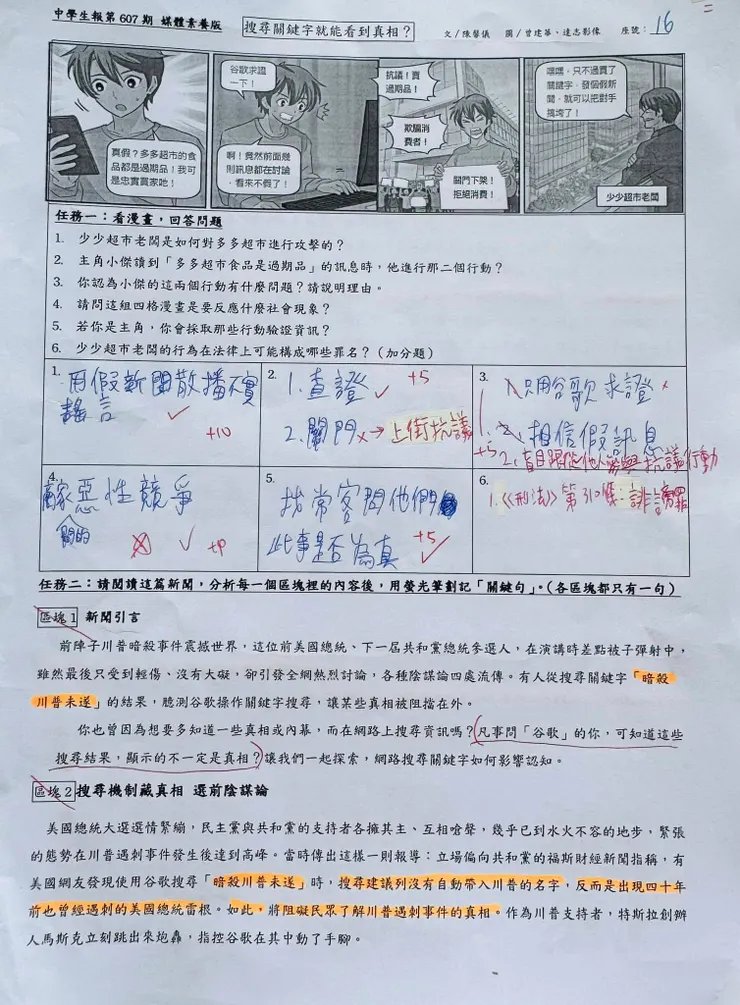 中學生報第607期 媒體素養版
搜尋關鍵字就能看到真相？
文/陳馨儀 圖/曾建華、達志影像 座號：16
真假？多多超市的食
品都是過期品！我可
是忠實買家吔！
谷歌求證
一下！
啊！竟然前面幾
則訊息都在討論
，看來不假了！
抗議！賣
過期品！
欺騙消
費者！
關門下架！
拒絕消費！
嘿嘿，只不過買了
關鍵字，發個假新
聞，就可以把對手
搞垮了！
少少超市老闆
任務一：看漫畫，回答問題
1. 少少超市老闆是如何對多多超市進行攻擊的？
2. 主角小傑讀到「多多超市食品是過期品」的訊息時，他進行那二個行動？
3. 你認為小傑的這兩個行動有什麼問題？請說明理由。
4. 請問這組四格漫畫是要反應什麼社會現象？
5. 若你是主角，你會採取那些行動驗證資訊？
6. 少少超市老闆的行為在法律上可能構成哪些罪名？（加分題）
1.
用假新聞散播不實
謠言
+10
2.
1.查證
+5
2.關門→上街抗議
3.
只用谷歌求證
1.
相信假訊息
+5
2.盲目跟從他人參與抗議行動
4.
商家惡性競爭
5.
找常客問他們
此事是否為真
+5
6.
1.《刑法》第310條：誹謗罪
任務二：請閱讀這篇新聞，分析每一個區塊裡的內容後，用螢光筆劃記「關鍵句」。（各區塊都只有一句）
區塊1 新聞引言
前陣子川普暗殺事件震撼世界，這位前美國總統、下一屆共和黨總統參選人，在演講時差點被子彈射中，
雖然最後只受到輕傷、沒有大礙，卻引發全網熱烈討論，各種陰謀論四處流傳。有人從搜尋關鍵字「暗殺
川普未遂」的結果，臆測谷歌操作關鍵字搜尋，讓某些真相被阻擋在外。
你也曾因為想要多知道一些真相或內幕，而在網路上搜尋資訊嗎？凡事問「谷歌」的你，可知道這些
搜尋結果，顯示的不一定是真相？讓我們一起探索，網路搜尋關鍵字如何影響認知。
區塊2 搜尋機制藏真相 選前陰謀論
美國總統大選選情緊繃，民主黨與共和黨的支持者各擁其主、互相嗆聲，幾乎已到水火不容的地步，緊張
的態勢在川普遇刺事件發生後達到高峰。當時傳出這樣一則報導：立場偏向共和黨的福斯財經新聞指稱，有
美國網友發現使用谷歌搜尋「暗殺川普未遂」時，搜尋建議列沒有自動帶入川普的名字，反而是出現四十年
前也曾經遇刺的美國總統雷根。如此，將阻礙民眾了解川普遇刺事件的真相。作為川普支持者，特斯拉創辦
人馬斯克立刻跳出來炮轟，指控谷歌在其中動了手腳。